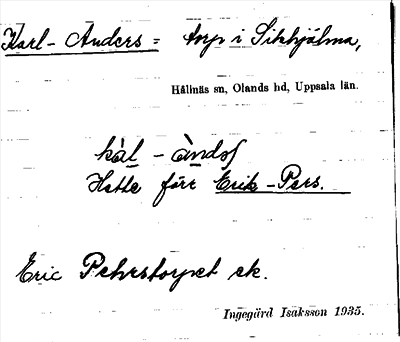 Karl-Anders = torp i Sikhjälma,
Hållnäs sn, Olands hd, Uppsala län.
kàl - àndạṣ
Hette förr Erik-Pers.
Eric Pehrstorpet ek.
Ingegärd Isaksson 1935.